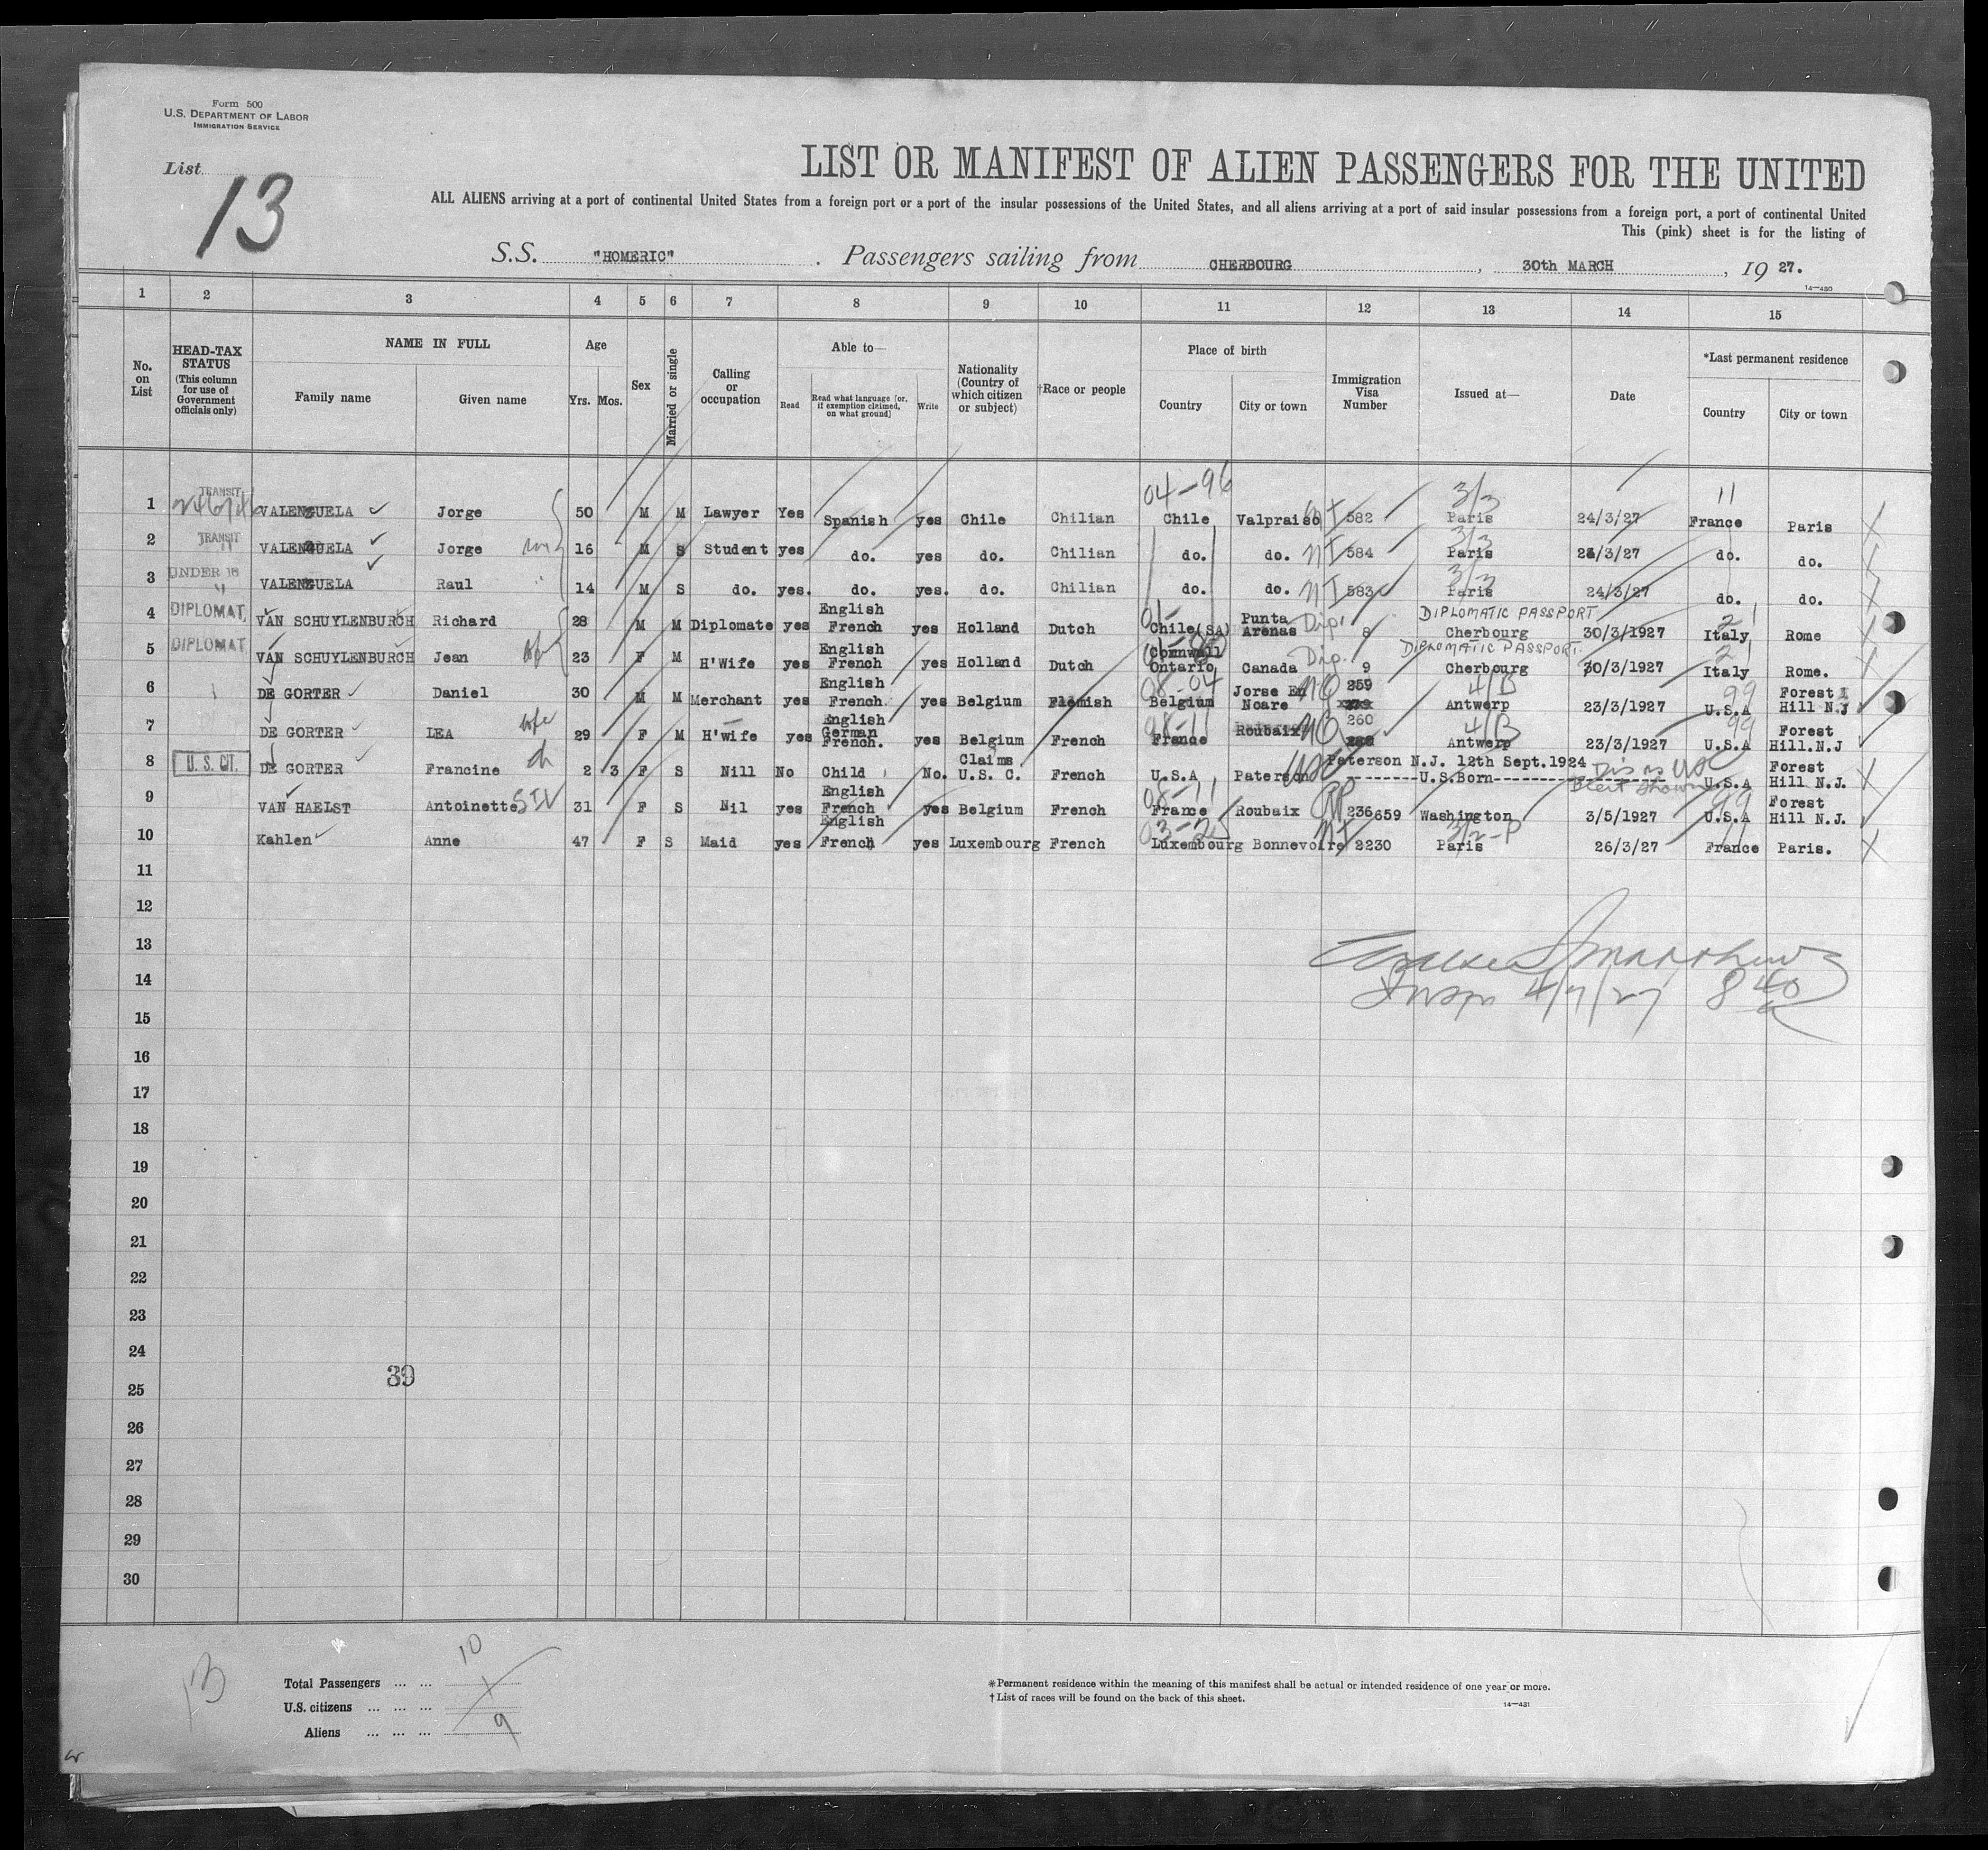 Form 500
U.S. DEPARTMENT OF LABOR
IMMIGRATION SERVICE
List 13
LIST OR MANIFEST OF ALIEN PASSENGERS FOR THE UNITED
ALL ALIENS arriving at a port of continental United States from a foreign port or a port of the insular possessions of the United States, and all aliens arriving at a port of said insular possessions from a foreign port, a port of continental United
This (pink) sheet is for the listing of
S.S. "HOMERIC". Passengers sailing from CHERBOURG, 30th MARCH, 19 27.
14—430
1 2 3 4 5 6 7 8 9 10 11 12 13 14 15
No. on List
HEAD-TAX STATUS (This column for use of Government officials only)
NAME IN FULL
Family name
Given name
Age
Yrs. Mos.
Sex
Married or single
Calling or occupation
Able to—
Read
Read what language [or, if exemption claimed, on what ground]
Write
Nationality (Country of which citizen or subject)
†Race or people
Place of birth
Country
City or town
Immigration Visa Number
Issued at—
Date
*Last permanent residence
Country
City or town
04-96 3/3 11
1 TRANSIT VALENZUELA Jorge 50 M M Lawyer Yes Spanish yes Chile Chilian Chile Valpraiso 582 Paris 24/3/27 France Paris
3/3
2 TRANSIT VALENZUELA Jorge 16 M S Student yes do. yes do. Chilian do. do. NI 584 Paris 24/3/27 do. do.
3/3
3 UNDER 16 VALENZUELA Raul 14 M S do. yes. do. yes. do. Chilian do. do. NI 583 Paris 24/3/27 do. do.
4 DIPLOMAT VAN SCHUYLENBURCH Richard 28 M M Diplomate yes English French yes Holland Dutch Chile(SA) Punta Arenas Dip. 8 DIPLOMATIC PASSPORT Cherbourg 30/3/1927 Italy Rome
5 DIPLOMAT VAN SCHUYLENBURCH Jean wfe 23 F M H'Wife yes English French yes Holland Dutch Cornwall Ontario, Canada Dip. 9 DIPLOMATIC PASSPORT Cherbourg 30/3/1927 Italy Rome.
6 DE GORTER Daniel 30 M M Merchant yes English French yes Belgium Flemish 08-04 Belgium Jorse En Noare NQ 259 4/B Antwerp 23/3/1927 99 U.S.A Forest Hill N.J
7 DE GORTER LEA wfe 29 F M H'wife yes English German French. yes Belgium French 08-11 France Roubaix NQ 260 4/B Antwerp 23/3/1927 99 U.S.A Forest Hill.N.J
8 U. S. CIT. DE GORTER Francine ch 2 3 F S Nill No Child No. Claims U.S. C. French U.S.A Paterson USC Paterson N.J. 12th Sept.1924 -------U.S.Born------- U.S.A Forest Hill N.J.
9 VAN HAELST Antoinette 31 F S Nil yes English French yes Belgium French 08-11 France Roubaix 236659 Washington 3/5/1927 99 U.S.A Forest Hill N.J.
10 Kahlen Anne 47 F S Maid yes English French yes Luxembourg French 03-25 Luxembourg Bonnevoire 2230 3/2-P Paris 26/3/27 11 France Paris.
11
12
13
14 Insp 4/7/27 8 40
15
16
17
18
19
20
21
22
23
24
39
25
26
27
28
29
30
13
Total Passengers ... ... 10
U.S. citizens ... ... ... 1
Aliens ... ... ... 9
*Permanent residence within the meaning of this manifest shall be actual or intended residence of one year or more.
†List of races will be found on the back of this sheet.
14—431